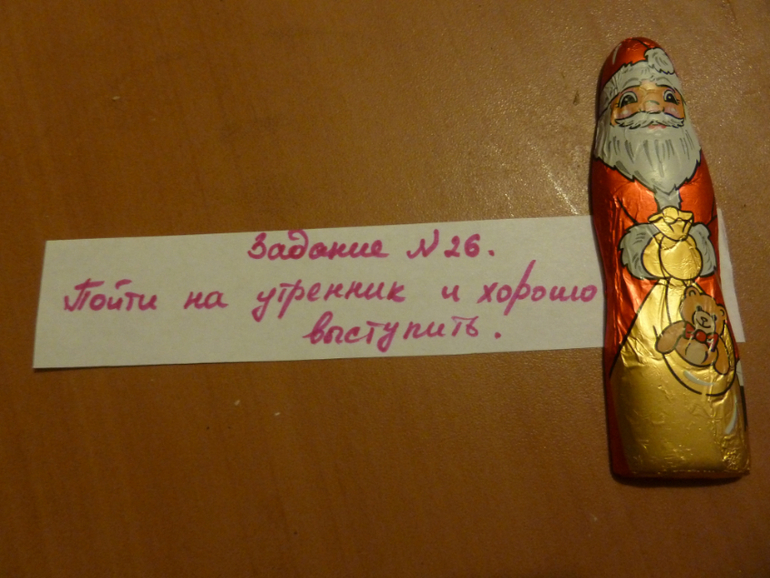 Задание N26.
Пойти на утренник и хорошо
выступить.